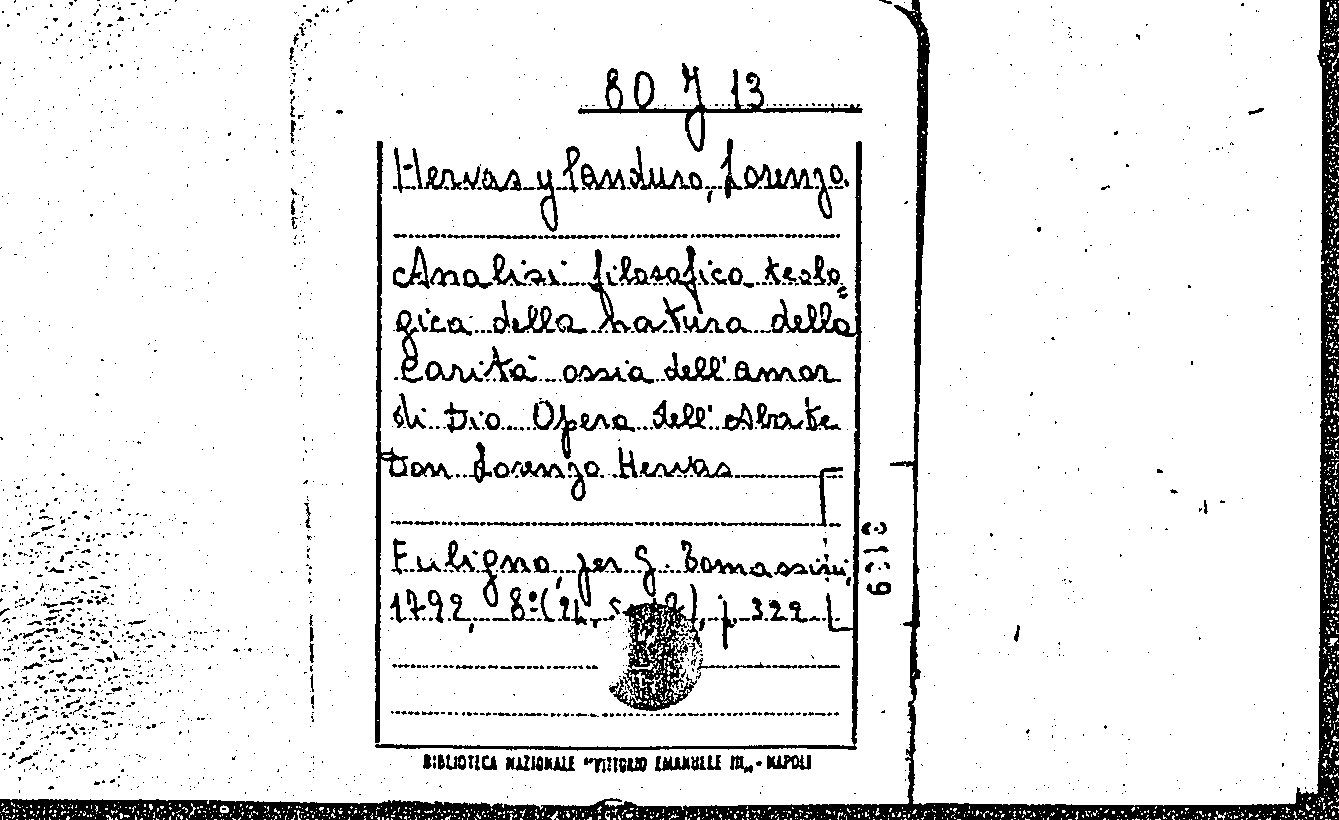 80 J 13
Hervas y Panduro, Lorenzo.
Analisi filosofico teolo=
gica della natura della
Carità ossia dell'amor
di Dio Opera dell'Abate
Don Lorenzo Hervas
Fuligno, per G. Tomassini,
1792, 8º p. 322
BIBLIOTECA NAZIONALE "VITTORIO EMANUELE III" - NAPOLI